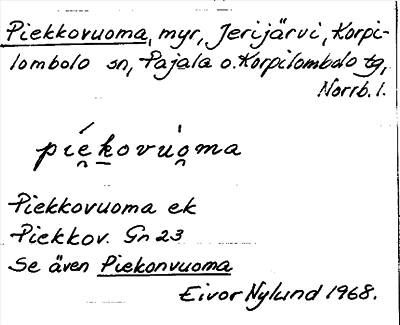 Piekkovuoma, myr, Jerijärvi, Korpi-
lombolo sn, Pajala o. Korpilombolo tg,
Norrb. l.
pie̯kovúo̯ma
Piekkovuoma ek
Piekkov. Gn 23
Se även Piekonvuoma
Eivor Nylund 1968.